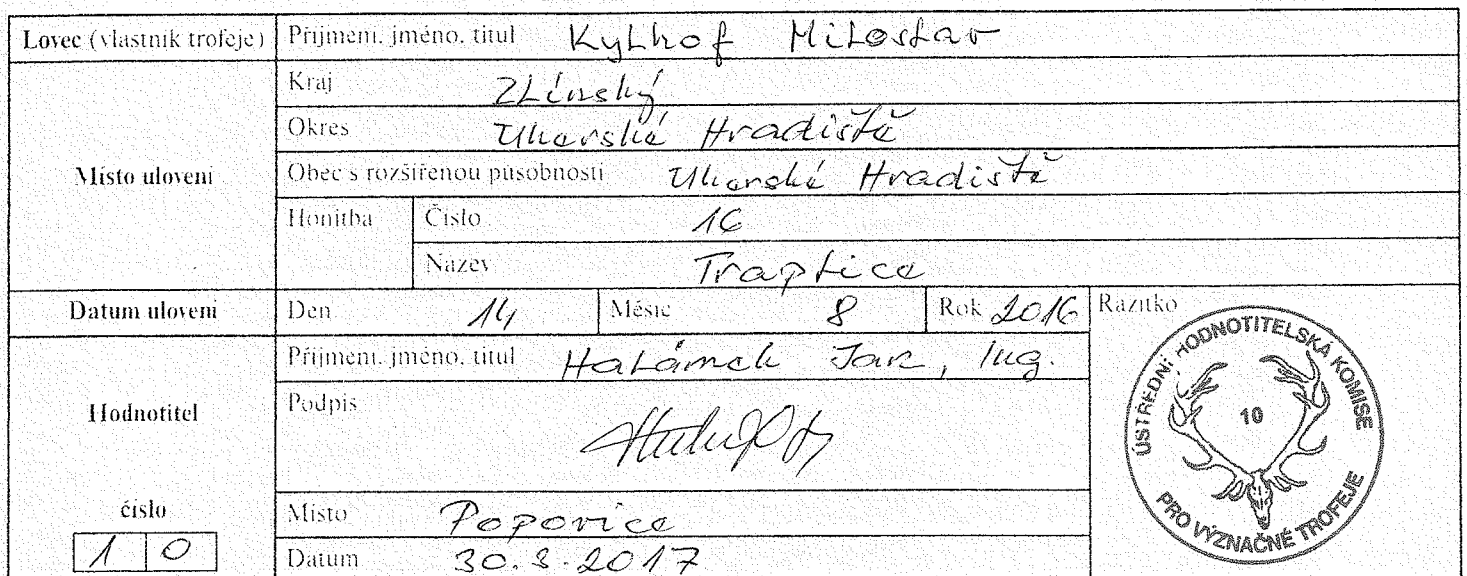 Lovec (vlastník trofeje) Příjmení, jméno, titul Kylhof Miloslav
Kraj Zlínský
Okres Uherské Hradiště
Místo ulovení Obec s rozšířenou působností Uherské Hradiště
Honitba Číslo 16
Název Traplice
Datum ulovení Den 14 Měsíc 8 Rok 2016 Razítko
Příjmení, jméno, titul Halámek Jan, Ing.
Hodnotitel Podpis
číslo Místo Popovice
10 Datum 30.3.2017
ÚSTŘEDNÍ HODNOTITELSKÁ KOMISE
10
PRO VÝZNAČNÉ TROFEJE